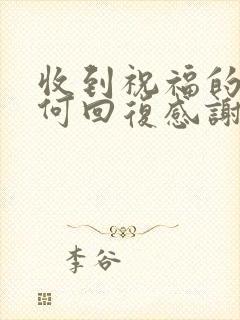 收到祝福的
何回復感謝
李谷